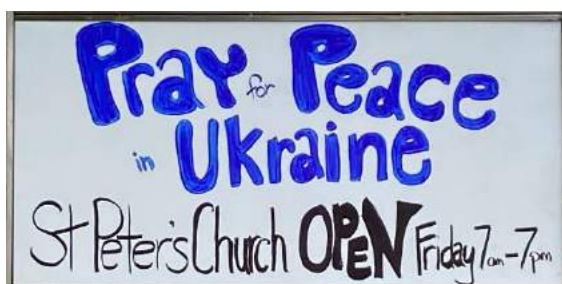 Pray for Peace
in Ukraine
St Peter's Church OPEN Friday 7am-7pm